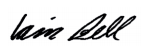 Iain Bell